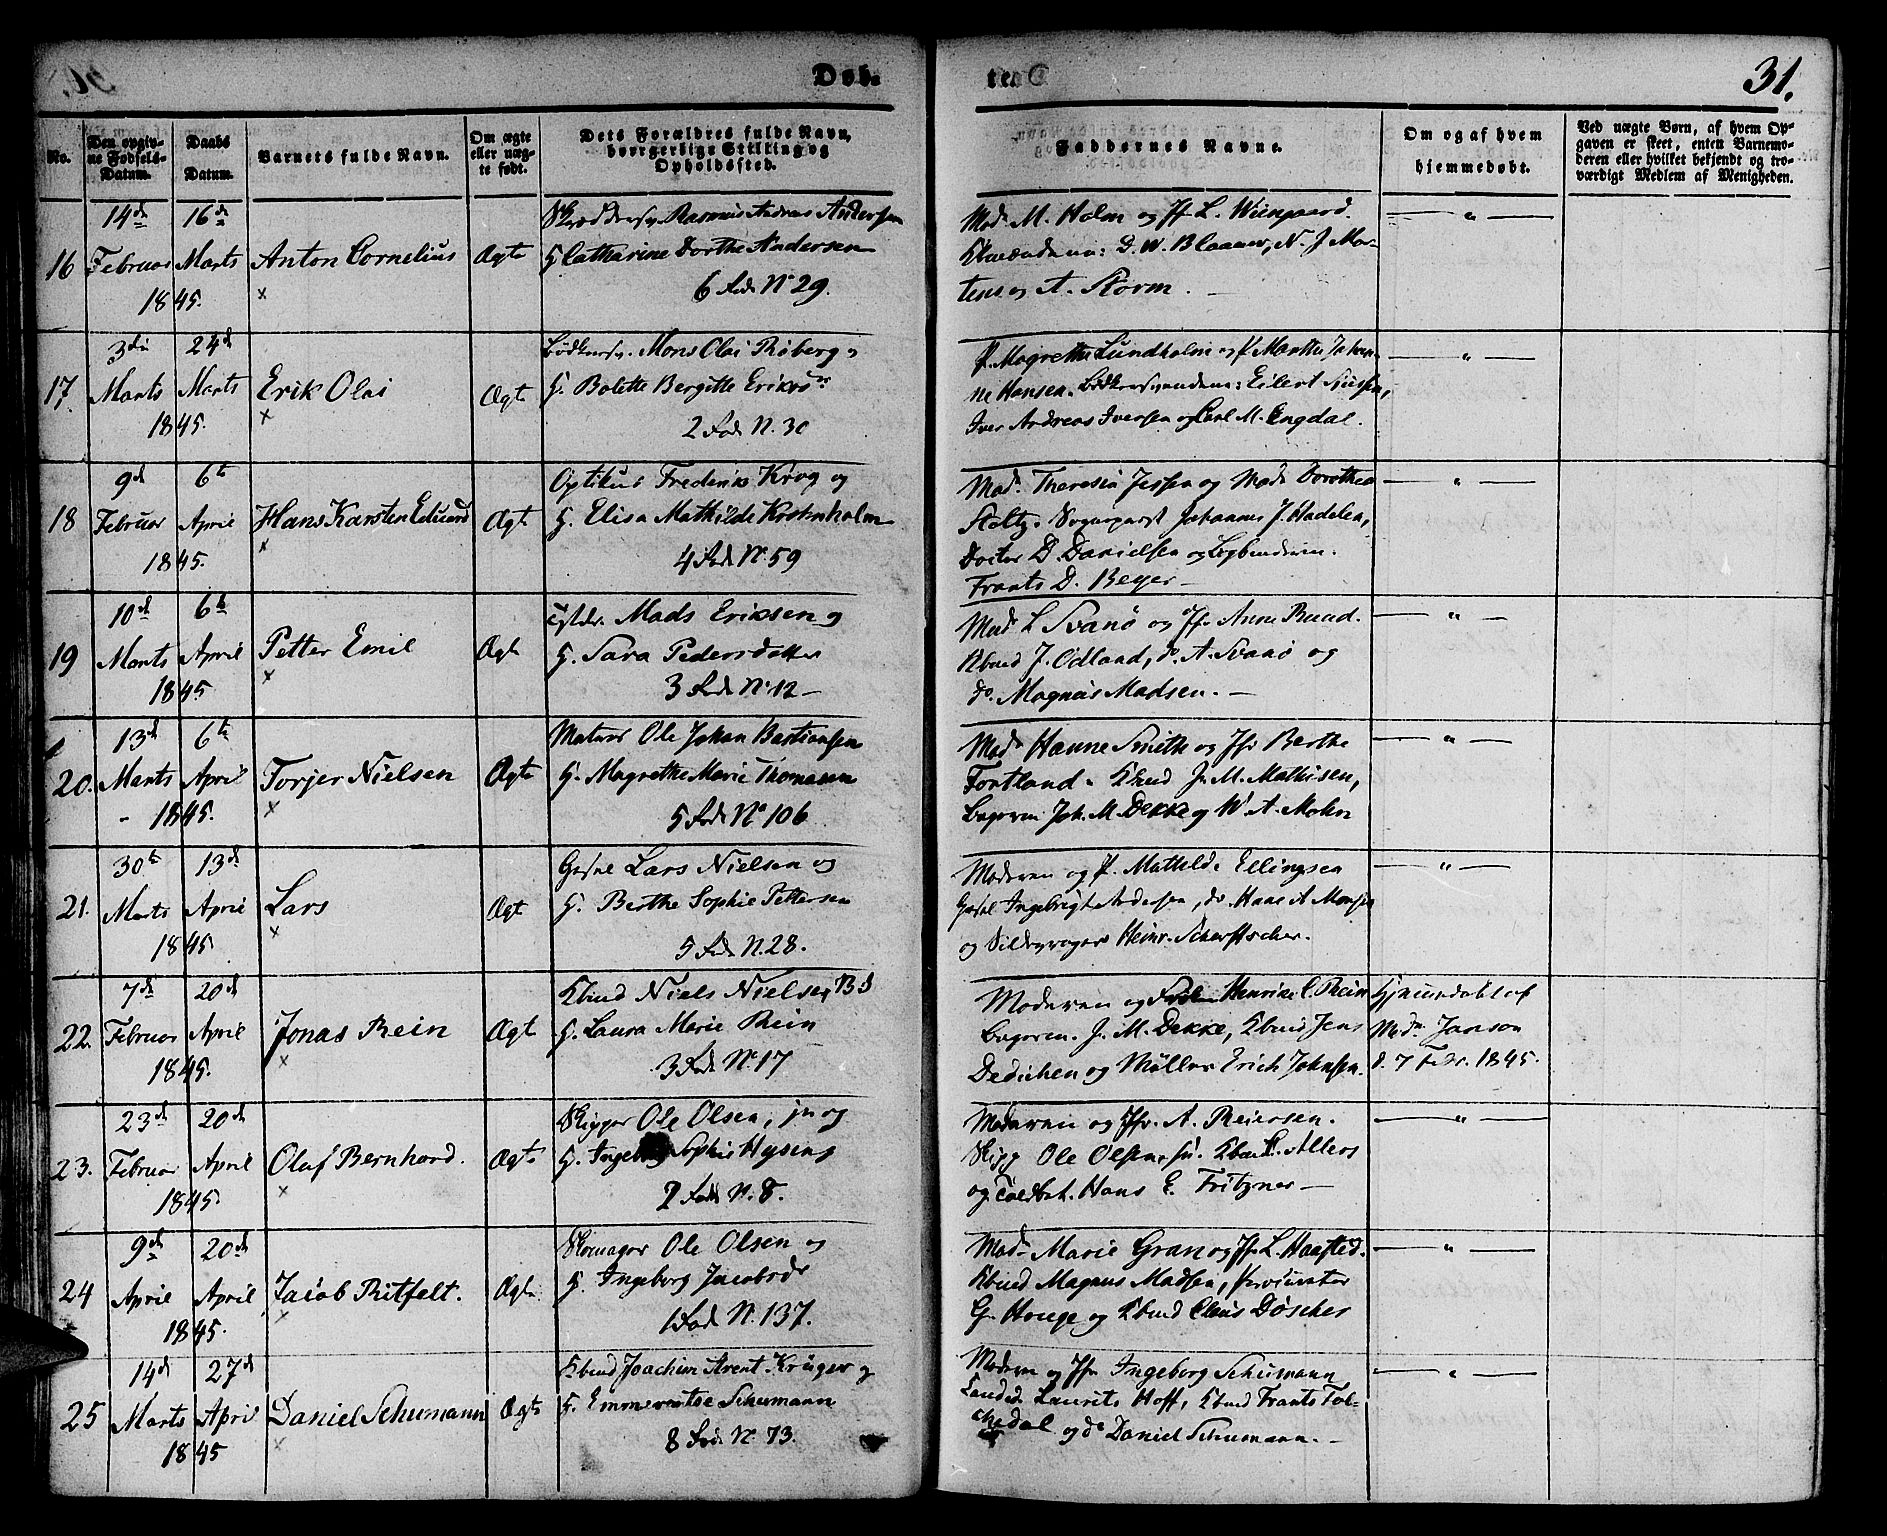 Døb.
31.
No.
Den opgivne Fødsels-Datum.
Daabs Datum.
Barnets fulde Navn.
Om ægte eller uægte født.
Dets Forældres fulde Navn, borgerlige Stilling og Opholdssted.
Faddernes Navne.
Om og af hvem hjemmedøbt.
Ved uægte Børn, af hvem Opgaven er skeet, enten Barnemoderen eller hvilket bekjendt og troværdigt Medlem af Menigheden.
14de 16de Rasmus Andreas Andersen Mad. M. Holm og Jfr L. Wiingaard. — " —
16 Februar Marts Anton Cornelius Ægte H. Cathrine Dorthe Andersen D. W. Blaauw, N. J. Mor-
1845. × 6 Rode No 29. tens og A. Storm. —
3die 24de Mons Olai Roberg P. Magrethe Lundholm og P. Marthe — " —
17. Marts Marts Erik Olai Ægt H. Bolette Bergitte Eriks ne Hansen. Eilert
1845. × 2 Rode N. 30 Iver Andreas Iversen og Carl M. Engdal.
9d 6te Optikus Frederik Krog og Mad. Theresia Jessen og Mad. Dorothea — " —
18 Februar April Hans Karsten Eduard Ægt. H. Elisa Mathilde Krohnholm Stoltz. Johannes J. Hadeler,
1845. × 4 Rode No. 59 Doctor D. Danielsen og
Frants D. Beyer —
10d 6te Mads Eriksen og Mad. L Svanø og Jfr. Anne Ruud. — " —
19 Marts April Petter Emil Ægt H. Sara Pedersdatter Kbmd J. Odland, do A. Svanø og
1845 × 3 Rode No. 12 — do. Magnus Madsen. —
13d 6te Matros Ole Johan Bastiansen Mad. Hanne Smith og Jfr Berthe — " —
20. Marts April Torjer Nielsen Ægte H. Magrethe Marie Thomasen Fortland. Kbmd J. M. Mathisen,
1845. × 5 Rode No 106 Joh. M. Dekke og W. A. Mohr
30te 13de Lars Nielsen og Moderen og P. Mathilde Ellingsen — " —
21. Marts April Lars Ægt H. Berthe Sophie Pettersen Ingebrigt Andersen, do Hans A Monsen
1845 × 5 Rode N. 28. og Heinr.
7de 20de Kbmd Niels Nielsen Moderen og Henrike C. Rein Hjemmedøbt af
22. Februar April Jonas Rein Ægt H. Laura Marie Rein J. M. Dekke, Kbmd Jens Mad. Janson
1845. × 3 Rode No. 17 Dedichen og Møller Erich Johnsen. d. 7 Febr. 1845.
23de 20de Skipper Ole Olsen, jn og Moderen og Jfr. A. Reiersen. — " —
23. Februar April Olaf Bernhard. Ægte H. Sophie Skipp Ole Olsen sn. Kbmd Allers
1845. × 2 Rode N. 8. og Toldbet. Hans E. Fritzner —
9de 20de Skomager Ole Olsen og Mad. Marie Gran og Jfr L. Haafted. — " —
24 April April Jacob Ritfelt. Ægte H. Ingeborg Jacobsdr Kbmd Magnus Madsen, Procurator
1845. 1 Rode N. 137. G. Houge og Kbmd Claus Döscher
14d 27d Kbmd Joachim Arent Krüger og Moderen og Jfr Ingeborg Schumann — " —
25 Marts April Daniel Schumann Ægte H. Schumann Laurits Hoff, Kbmd Frants
1845 × 8 Rode No. 73. og do Daniel Schumann. —